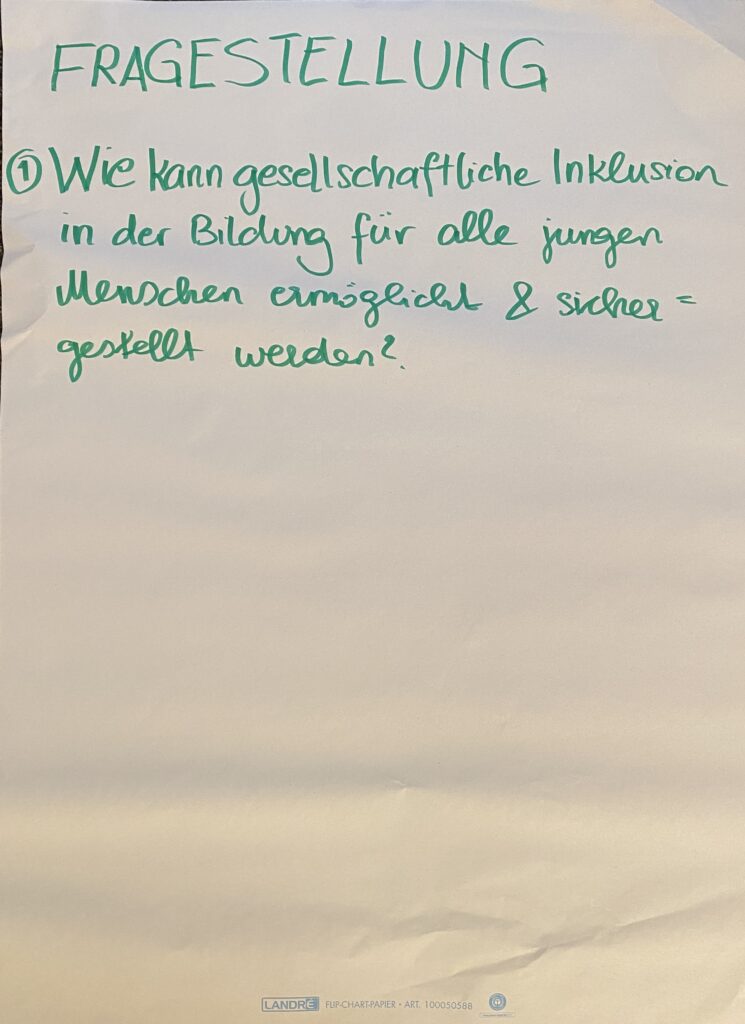 FRAGESTELLUNG
① Wie kann gesellschaftliche Inklusion
in der Bildung für alle jungen
Menschen ermöglicht & sicher=
gestellt werden?
LANDRÉ FLIP-CHART-PAPIER • ART. 100050588